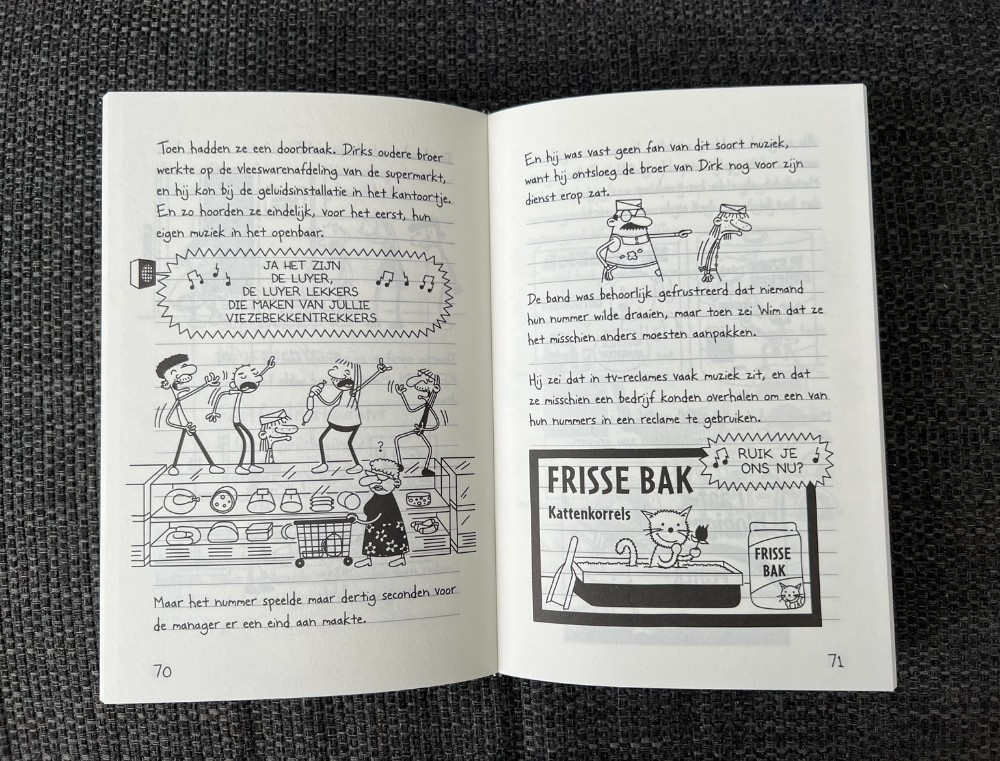 Toen hadden ze een doorbraak. Dirks oudere broer
werkte op de vleeswarenafdeling van de supermarkt,
en hij kon bij de geluidsinstallatie in het kantoortje.
En zo hoorden ze eindelijk, voor het eerst, hun
eigen muziek in het openbaar.
JA HET ZIJN
DE LUYER,
DE LUYER LEKKERS
DIE MAKEN VAN JULLIE
VIEZEBEKKENTREKKERS
?
Maar het nummer speelde maar dertig seconden voor
de manager er een eind aan maakte.
70
En hij was vast geen fan van dit soort muziek,
want hij ontsloeg de broer van Dirk nog voor zijn
dienst erop zat.
De band was behoorlijk gefrustreerd dat niemand
hun nummer wilde draaien, maar toen zei Wim dat ze
het misschien anders moesten aanpakken.
Hij zei dat in tv-reclames vaak muziek zit, en dat
ze misschien een bedrijf konden overhalen om een van
hun nummers in een reclame te gebruiken.
RUIK JE
ONS NU?
FRISSE BAK
Kattenkorrels
FRISSE
BAK
71